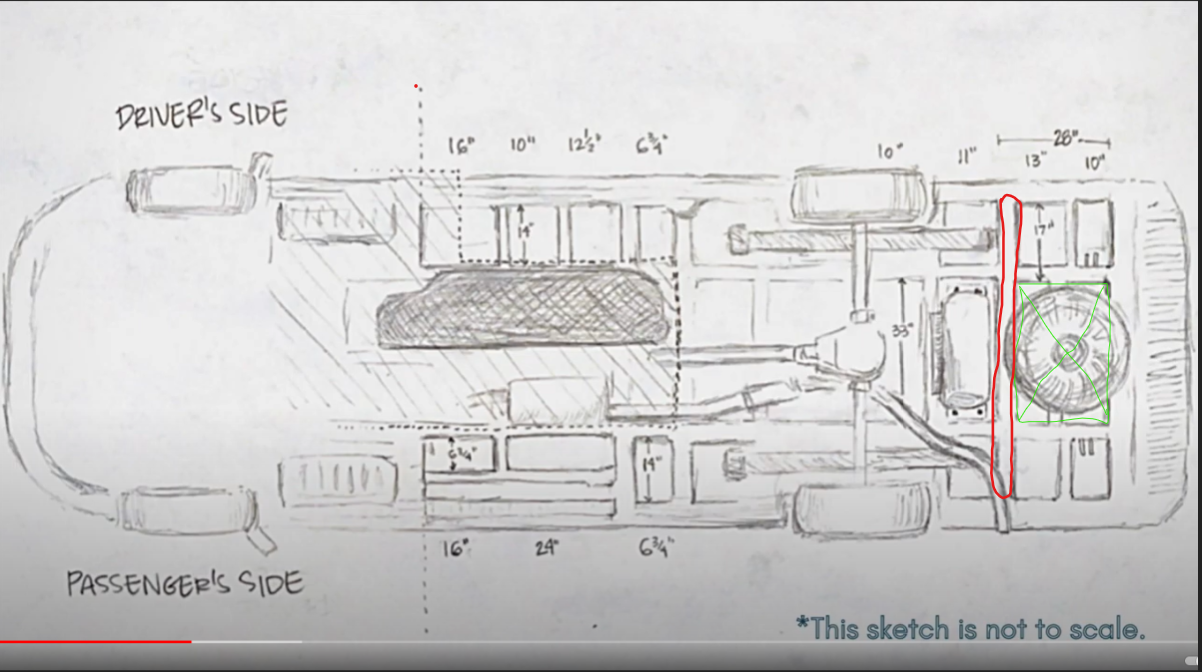 DRIVER'S SIDE
28"
16" 10" 12½" 6¾" 10" 11" 13" 10"
14"
17"
33"
6¾"
14"
16" 24" 6¾"
PASSENGER'S SIDE
*This sketch is not to scale.